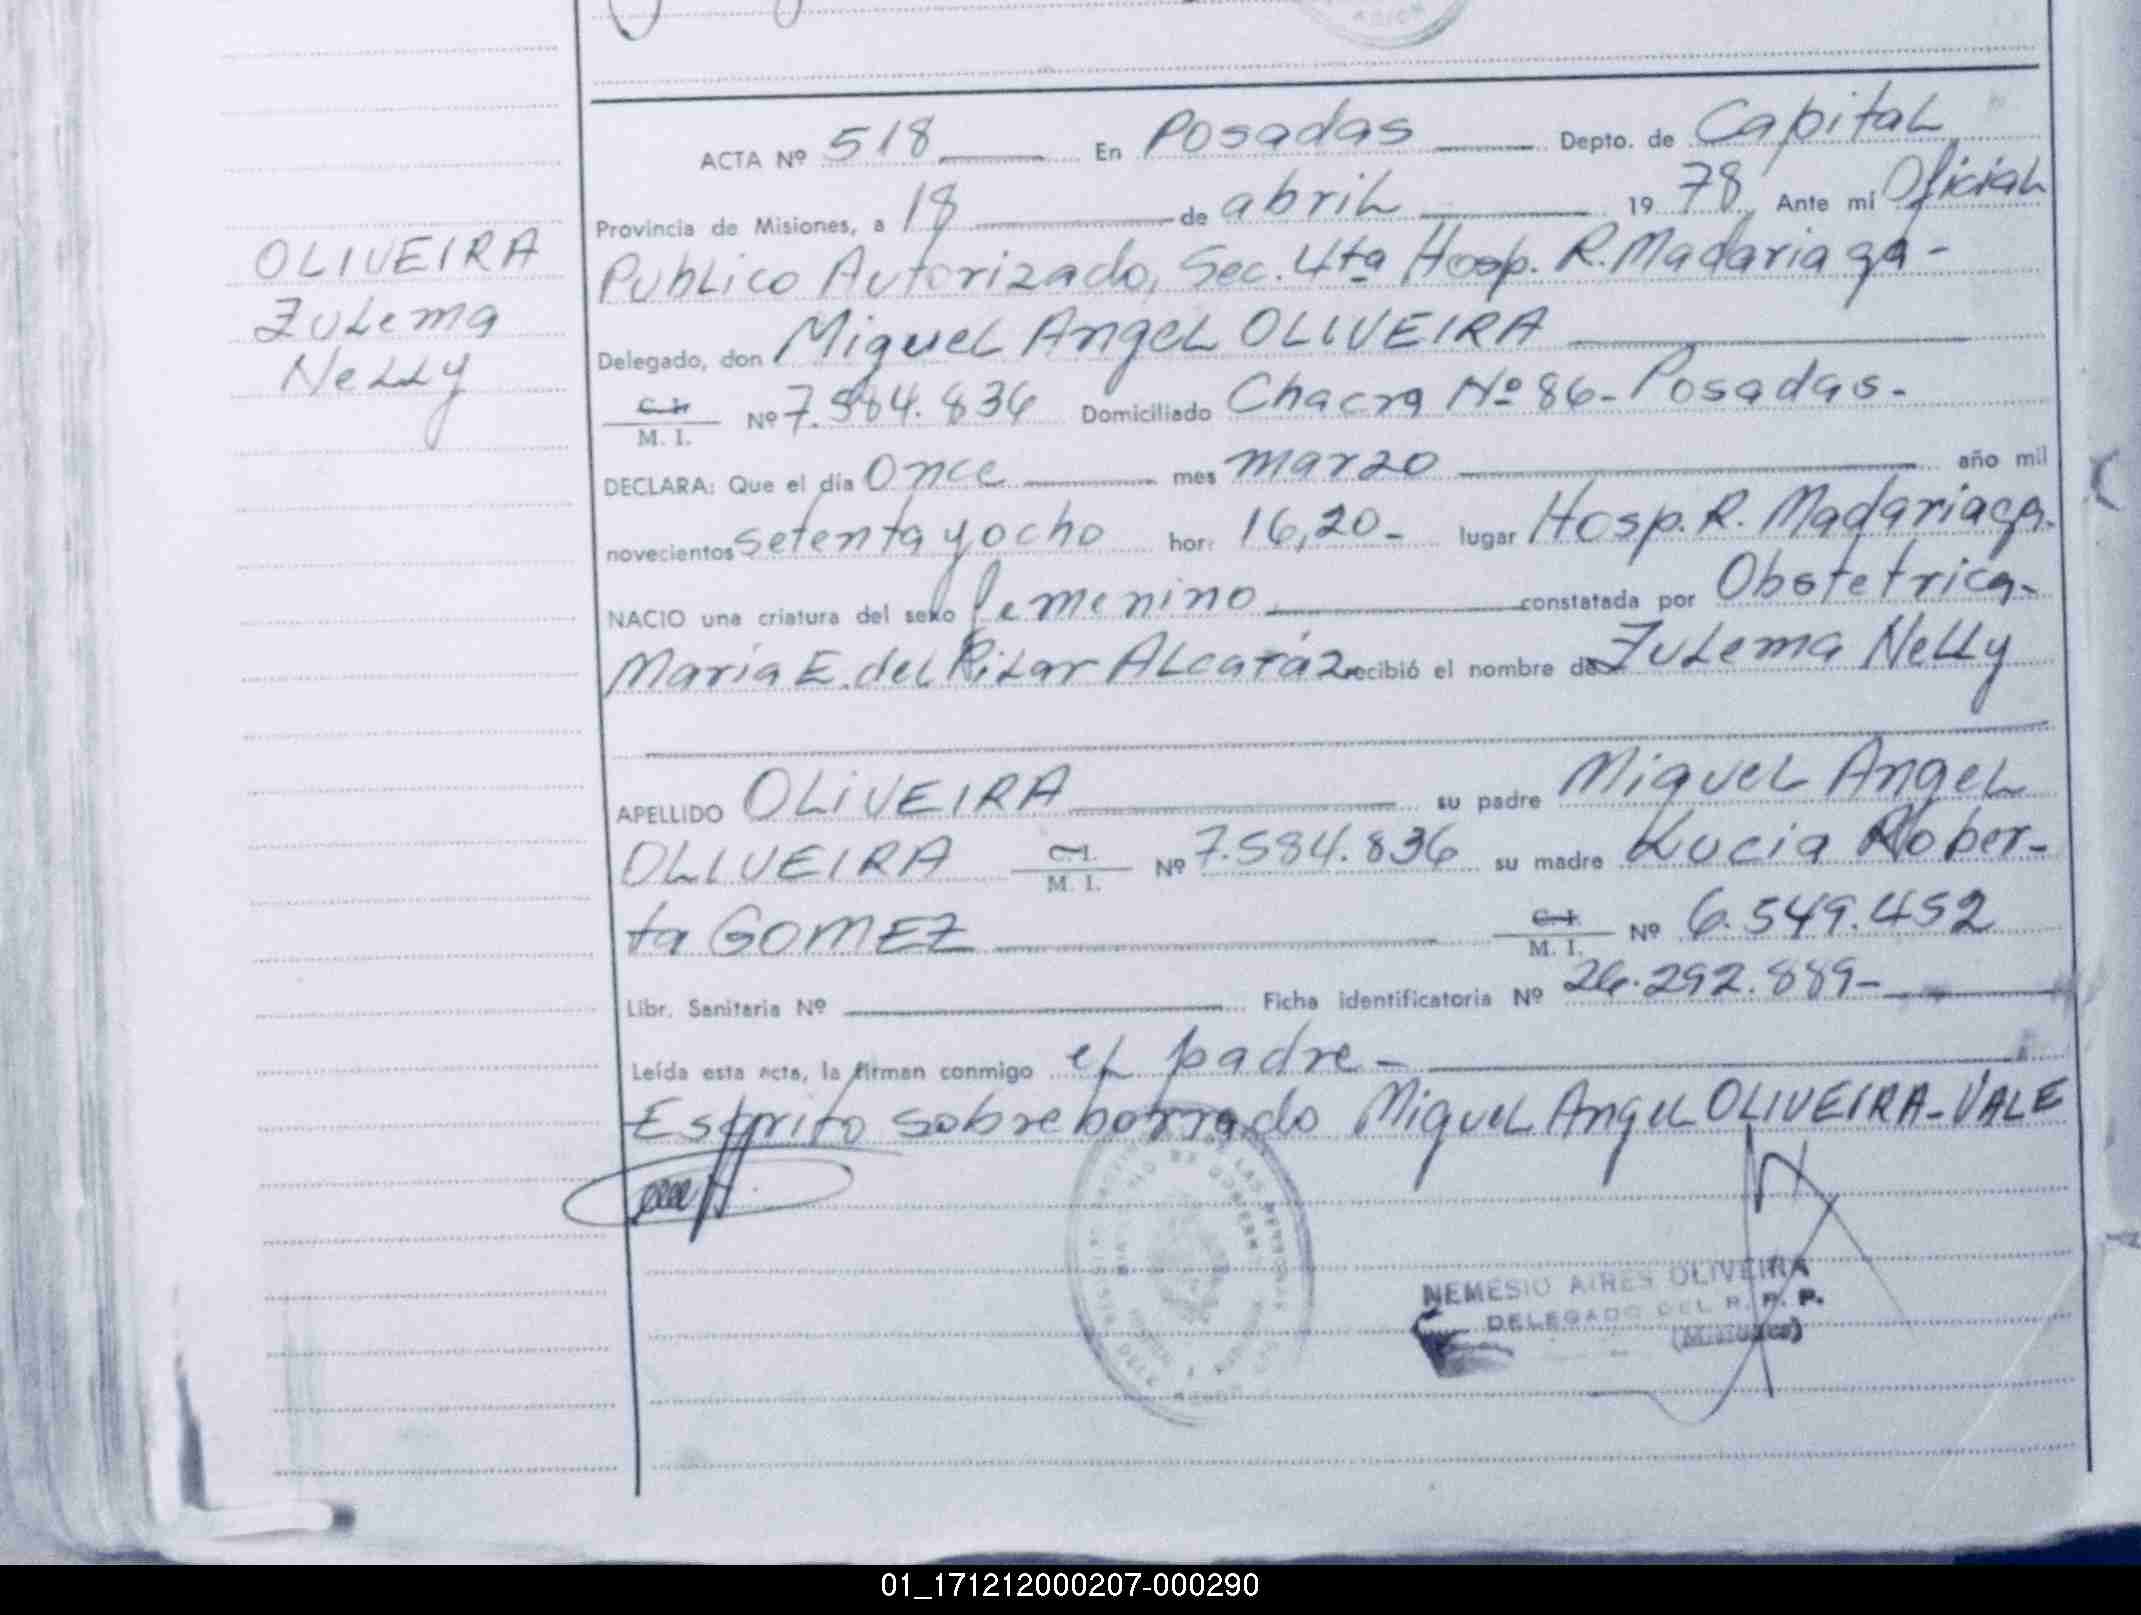 ACTA Nº 518 En Posadas Depto. de Capital
Provincia de Misiones, a 18 de abril 1978 Ante mi Oficial
Publico Autorizado, Sec. 4ta Hosp. R. Madariaga-
Delegado, don Miguel Angel OLIVEIRA
C. I. M. I. Nº 7.584.836 Domiciliado Chacra Nº 86- Posadas-
DECLARA: Que el día Once mes marzo año mil
novecientos setenta y ocho hor: 16,20- lugar Hosp. R. Madariaga.
NACIO una criatura del sexo femenino constatada por Obstetrica-
María E. del Pilar Alcaráz recibió el nombre de Zulema Nelly
APELLIDO OLIVEIRA su padre Miguel Angel
OLIVEIRA C. I. M. I. Nº 7.584.836 su madre Lucia Rober-
ta GOMEZ C. I. M. I. Nº 6.549.452
Libr. Sanitaria Nº Ficha identificatoria Nº 26.292.889-
Leída esta acta, la firman conmigo el padre-
Escrito sobreborrado Miguel Angel OLIVEIRA-VALE
OLIVEIRA
Zulema
Nelly
NEMESIO AIRES OLIVEIRA
DELEGADO DEL R. P. P.
(Misiones)
01_171212000207-000290